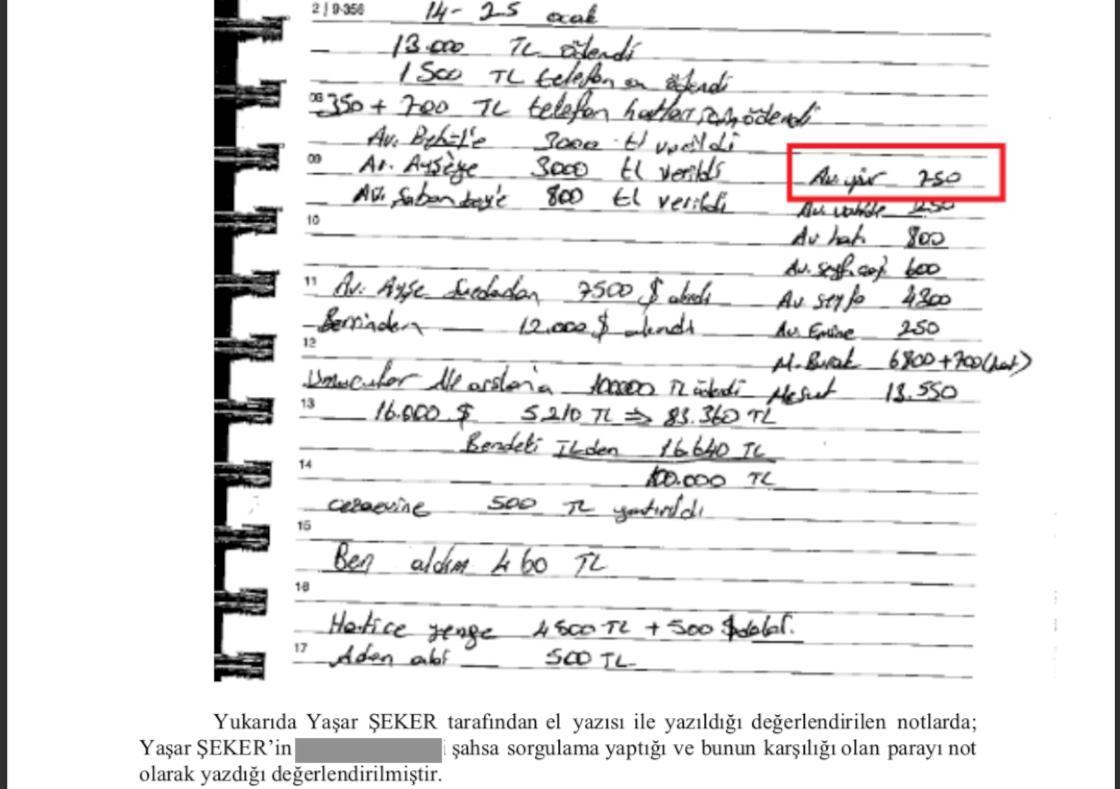 2 | 9-356
14 - 25 ocak
13.000 TL ödendi
1500 TL telefon ödendi
08 350 + 700 TL telefon hatları için ödendi
Av. 3000 tl verildi
09 Av. Ayşeye 3000 tl verildi
Av. Şaban bey'e 800 tl verildi
10
11 Av. Ayşe 7500 $ alındı
12.000 $ alındı
12
100000 TL ödendi
13 16.000 $ 5.210 TL ⇒ 83.360 TL
Bendeki TLden 16.640 TL
100.000 TL
14
cezaevine 500 TL yatırıldı
15
Ben aldım 460 TL
16
Hatice yenge 4500 TL + 500 $ dolar.
17 abi 500 TL
Av. 750
Av. 1250
Av hatı 800
Av. 600
Av seyfo 4300
Av Emine 250
M. Burak 6800 + 700 (hat)
Mesut 13.550
Yukarıda Yaşar ŞEKER tarafından el yazısı ile yazıldığı değerlendirilen notlarda;
Yaşar ŞEKER’in i şahsa sorgulama yaptığı ve bunun karşılığı olan parayı not
olarak yazdığı değerlendirilmiştir.